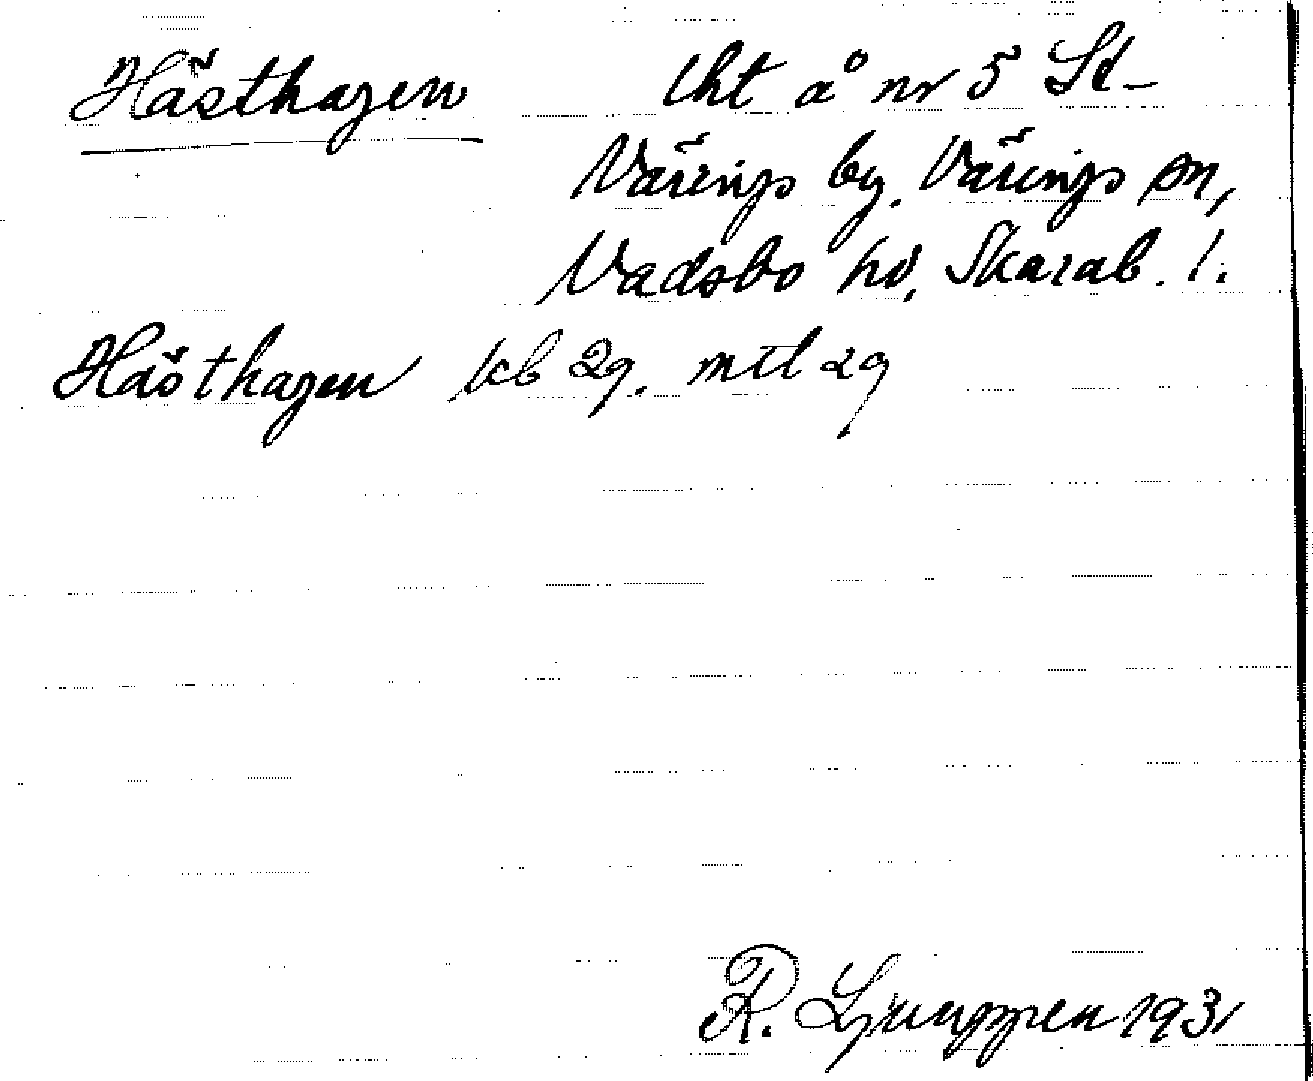 Hästhagen lht å nr 5 St-
Värings by. Värings sn,
Vadsbo hd, Skarab. l.
Hästhagen kb 29. mtl 29
R. Ljunggren 1931